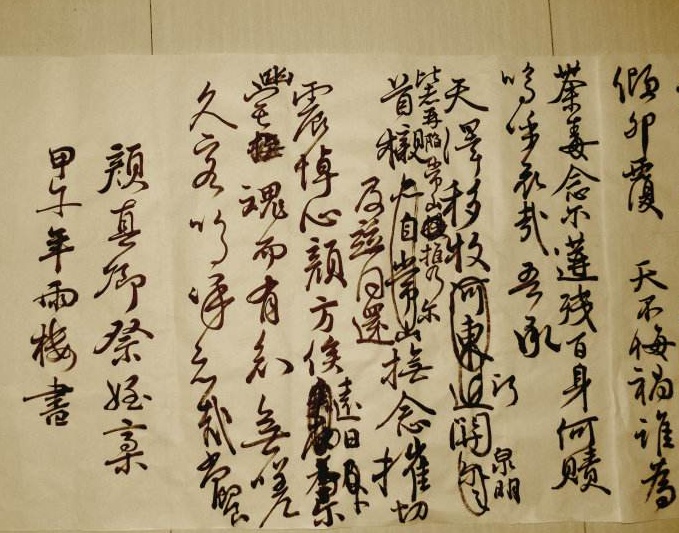 傾卵覆 天不悔禍誰為
荼毒念尔遘残百身何贖
嗚呼哀哉吾承
天澤移牧河東近關尔
泉明
比者再陷常山提携尔
首櫬亦自常山撫念摧切
及茲同還
震悼心顔方俟
遠日
塋 魂而有知無嗟
久客嗚呼哀哉尚饗
顔真卿祭姪稾
甲午年雨梅書